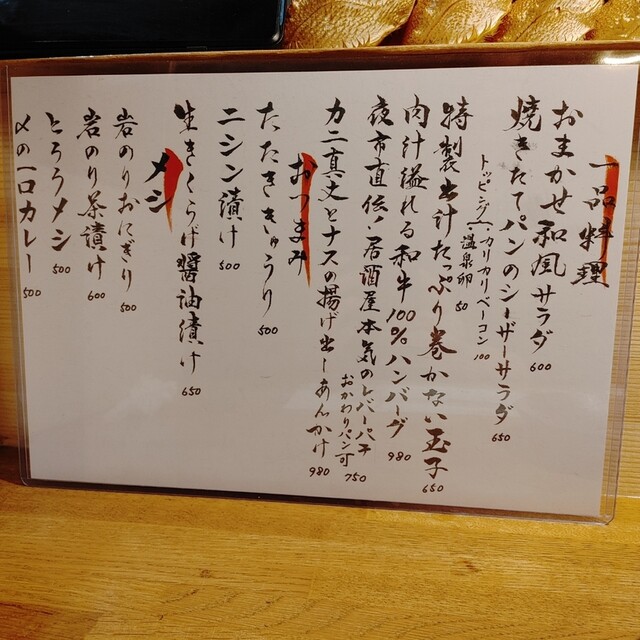 一品料理
おまかせ和風サラダ 600
焼きたてパンのシーザーサラダ 650
トッピング カリカリベーコン 100
温泉卵 50
特製出汁たっぷり巻かない玉子 650
肉汁溢れる和牛100%ハンバーグ 980
夜市直伝!居酒屋本気のレバーパテ 750
おかわりパン可
カニ真丈とナスの揚げ出しあんかけ 980
おつまみ
たたききゅうり 500
ニシン漬け 500
生きくらげ醤油漬け 650
メシ
岩のりおにぎり 500
岩のり茶漬け 600
とろろメシ 500
〆の一口カレー 500